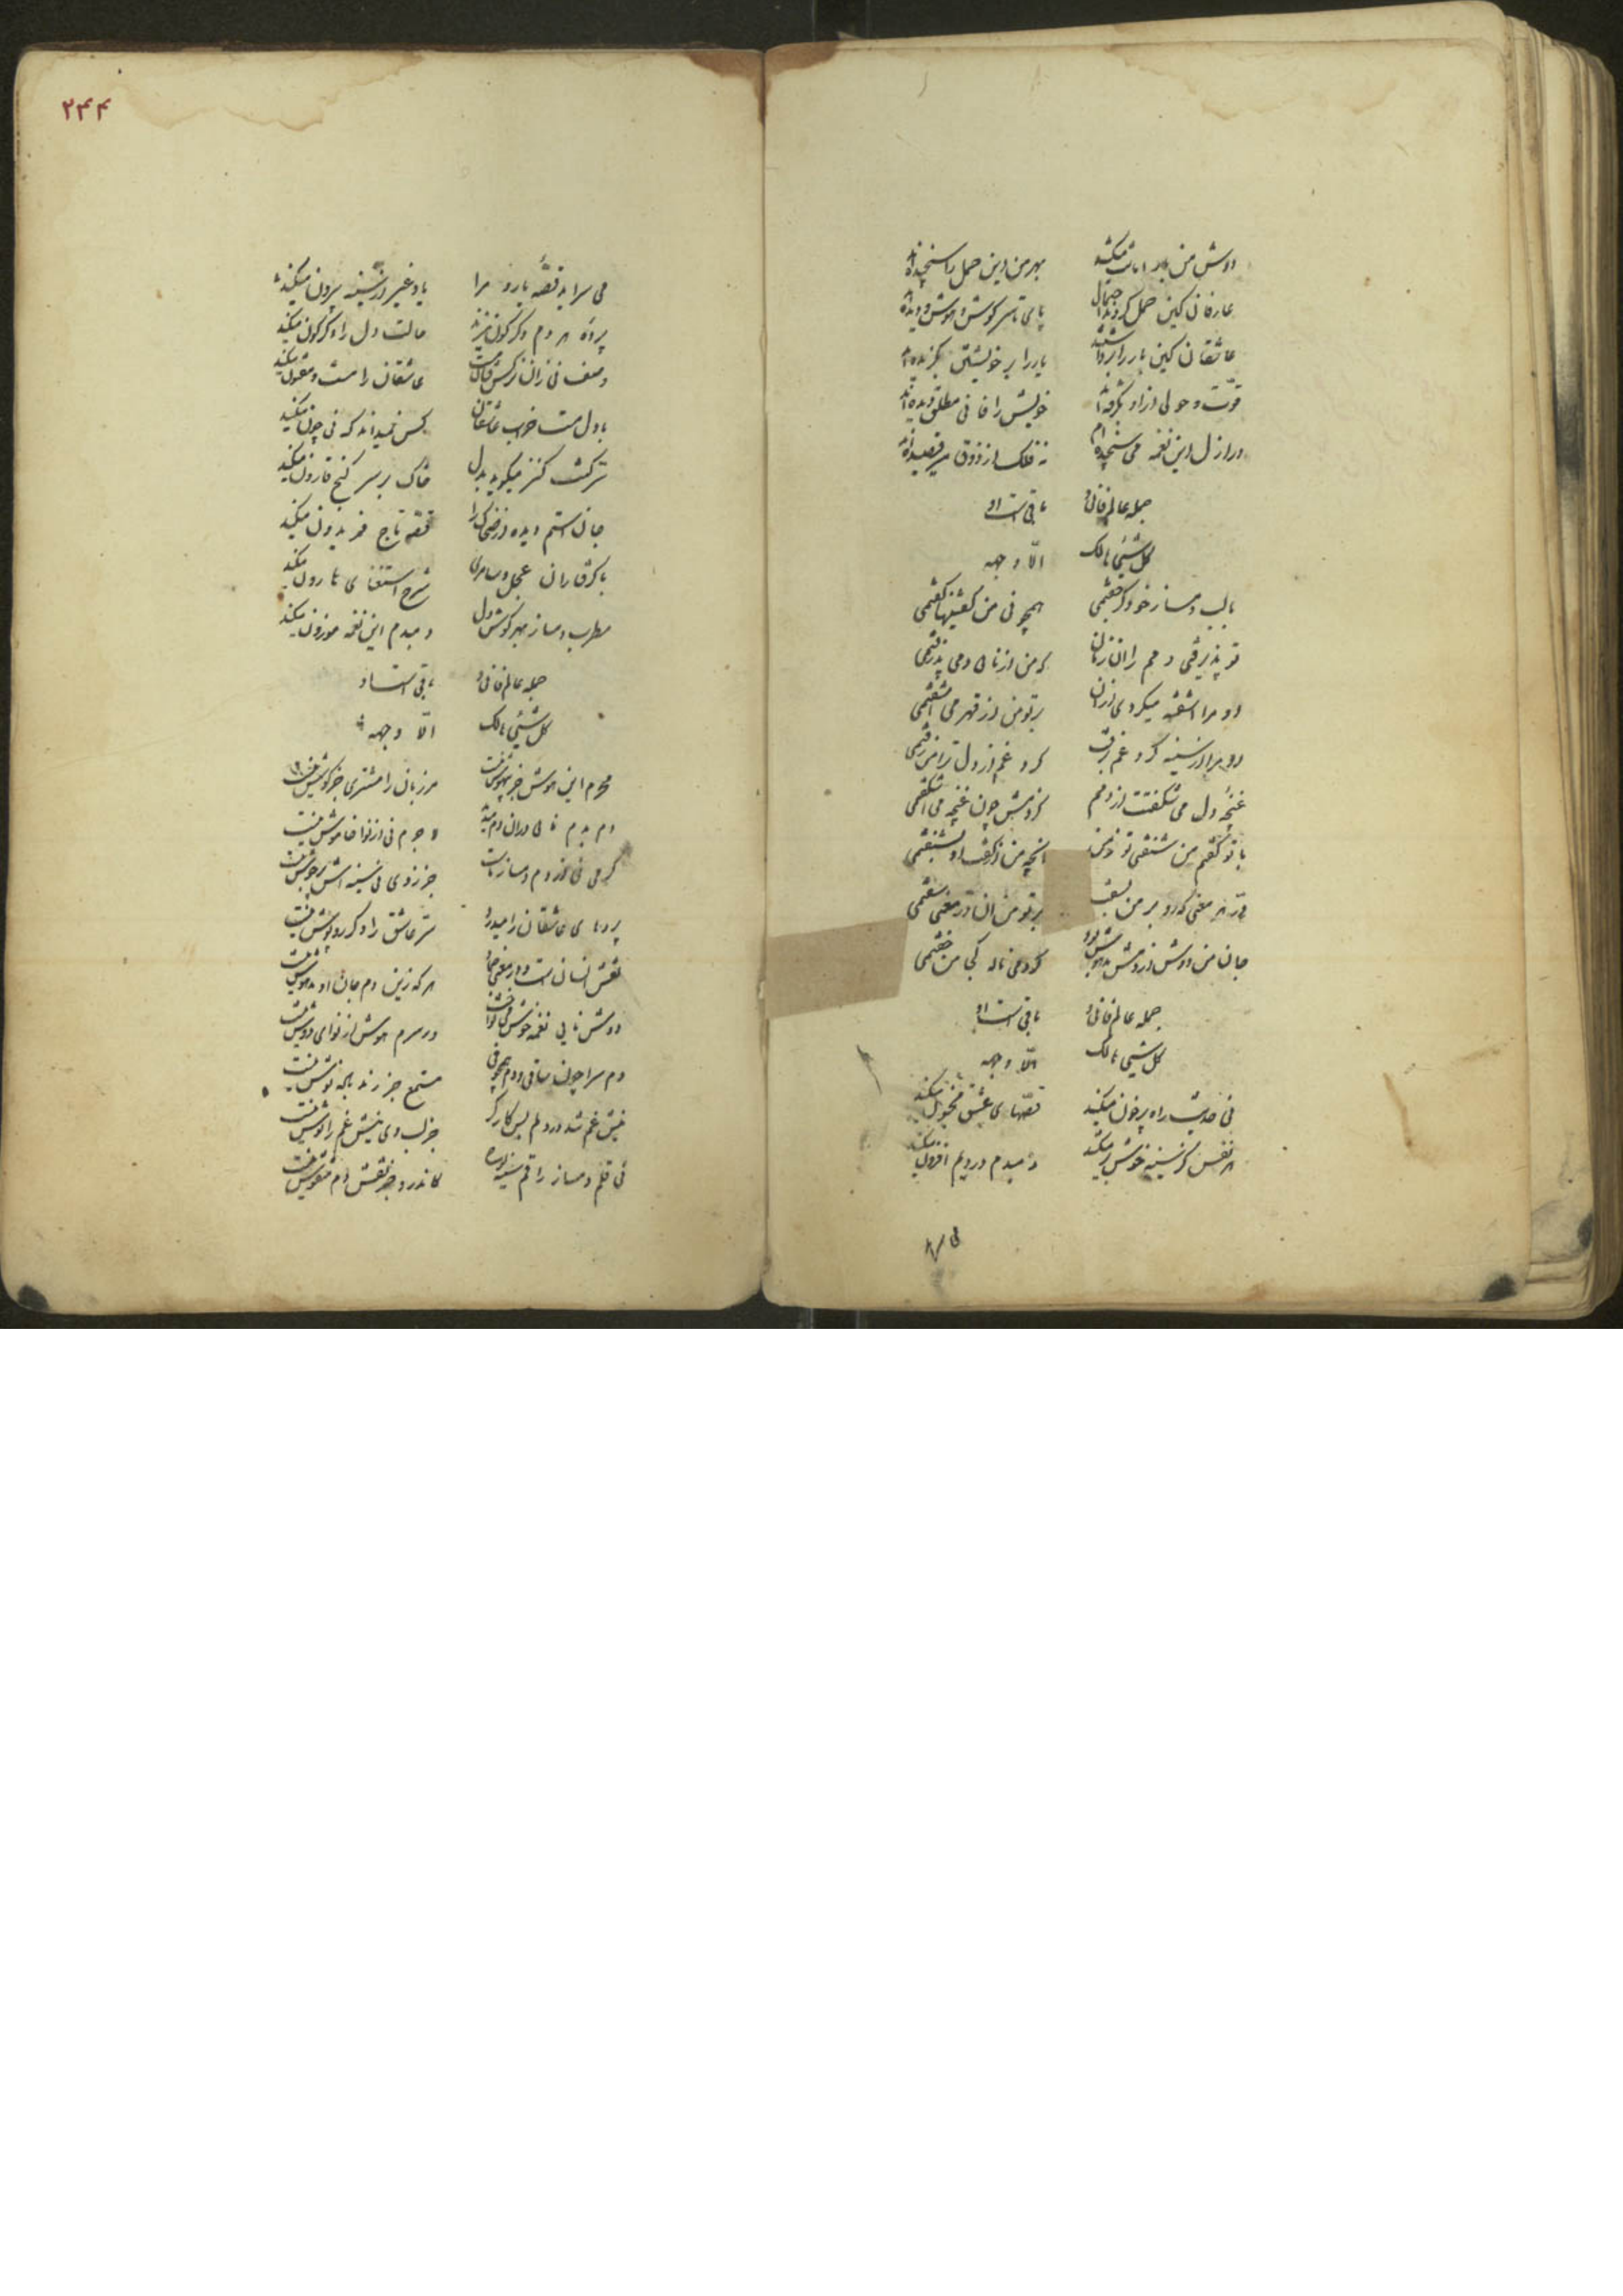 دوش من بار امانت میکشد بهر من این حمل را سنجیده‌اند
عارفان کین حمل کردند احتمال پای تا سر گوش و هوش و دیده‌اند
عاشقان کین بار را برداشتند یار را بر خویشتن بگزیده‌اند
قوت و حولی از او بگرفته‌اند خویش را فانی مطلق دیده‌اند
در ازل این نغمه می‌سنجیده‌ام نه فلک از ذوق میرقصیده‌اند
جمله عالم فانی و باقی است او
کل شیئ هالک الا وجهه
با لب دمساز خود گر جفتمی همچو نی من گفتنیها گفتمی
تو پذیرفتی دمم را آن زمان که من از نائی دمی پذرفتمی
او مرا آشفته میکردی از آن بر تو من از قهر می‌آشفتمی
او مرا از سینه گرد غم برفت گرد غم از دل ترا من رفتمی
غنچهٔ دل می شکفتت از دمم کز دمش چون غنچه می‌اشکفتمی
با تو گفتم من شنفتی تو ز من آنچه من از گفت او بشنفتمی
در هر معنی که او بر من بسفت بر تو من آن در معنی سفتمی
جان من دوش از دمش مدهوش بود کردمی ناله کجا من خفتمی
جمله عالم فانی و باقی است او
کل شیئ هالک الا وجهه
نی حدیث راه پر خون میکند قصّهای عشق مجنون میکند
هر نفس کز سینه خوش بر میکشد دمبدم در دلم افزون میکند
۲۴۴
می سراید قصّهٔ یار و مرا یاد غیر از سینه بیرون میکند
پردهٔ هر دم دگرگون میزند حالت دل را دگرگون میکند
وصف نی زان نرگس فتان مست عاشقان را مست و مفتون میکند
با دل مست خراب عاشقان کس نمیداند که نی چون میکند
سرّ کنت کنز میگوید بدل خاک بر سر گنج قارون میکند
جان استم دیده از ضحاک را قصّه تاج فریدون میکند
با گرفتاران عجل و سامری شرح استغنای هارون میکند
مطرب دمساز بهر گوش دل دمبدم این نغمه موزون میکند
جمله عالم فانی و باقی است او
کل شیئ هالک الّا وجهه
محرم این هوش جز بیهوش نیست مر زبان را مشتری جز گوش نیست
دم بدم نائی در آن دم میدمد لاجرم نی از نوا خاموش نیست
گرمی نی از دم دمساز ماست جز ز وی نی سینه‌اش پر جوش نیست
پردهای عاشقان را میدرد سرّ عاشق را دگر روپوش نیست
نقش انسان است و در معنی جماد هر که زین دم جان او مدهوش نیست
دوش نایی نغمه خوش می نواخت در سرم هوش از نوای دوش نیست
دم سرا چون ساقی و دم همچو نی مستمع جز رند باده نوش نیست
نیش غم شد در دلم بس کارگر جز لب وی نیش غم را نوش نیست
نی قلم دمساز راقم سینه لوح کاندر او جز نقش دم منقوش نیست